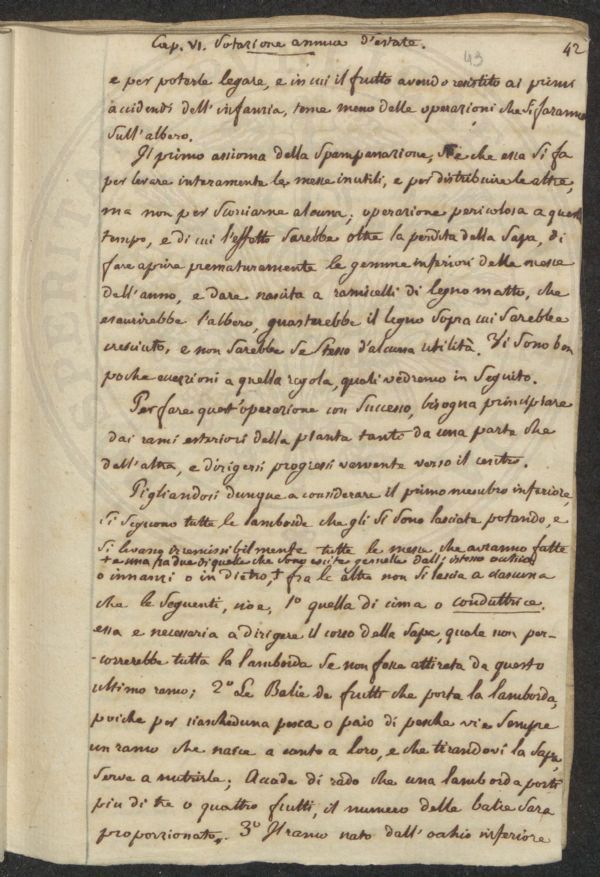 Cap. VI. Potazione annua d'estate.
43
42
e per poterle legare, e in cui il frutto avendo resistito ai primi
accidenti dell'infanzia, teme meno delle operazioni che si faranno
sull'albero.
Il primo assioma della Spampanazione, è che essa si fa
per levare interamente le messe inutili, e per distribuire le altre,
ma non per scorciarne alcuna; operazione pericolosa a questo
tempo, e di cui l'effetto sarebbe oltre la perdita della Sapa, di
fare aprire prematuramente le gemme inferiori delle messe
dell'anno, e dare nascita a ramicelli di legno matto, che
esaurirebbe l'albero, guasterebbe il legno sopra cui sarebbe
cresciuto, e non sarebbe se stesso d'alcuna utilità. Vi sono ben
poche eccezioni a quella regola, quali vedremo in seguito.
Per fare quest'operazione con successo, bisogna principiare
dai rami esteriori della pianta tanto da una parte che
dall'altra, e dirigersi progressivamente verso il centro.
Pigliandosi dunque a considerare il primo membro inferiore,
si seguono tutte le lamborde che gli si sono lasciate potando, e
si levano irremissibilmente tutte le messe che avranno fatte
+ e una fra due di quelle che sono uscite gemelle dall'istesso occhio
o innanzi o in dietro, + fra le altre non si lascia a ciascuna
che le seguenti, cioè, 1º quella di cima o conduttrice.
essa è necessaria a dirigere il corso della Sapa, quale non per-
-correrebbe tutta la lamborda se non fosse attirata da questo
ultimo ramo; 2º Le Balie de frutti che porta la lamborda,
poiche per ciascheduna pesca o paio di pesche vi è sempre
un ramo che nasce a canto a loro, e che tirandovi la Sapa,
serve a nutrirle; Accade di rado che una lamborda porti
più di tre o quattro frutti, il numero delle balie sarà
proporzionato. 3º Il ramo nato dall'occhio inferiore